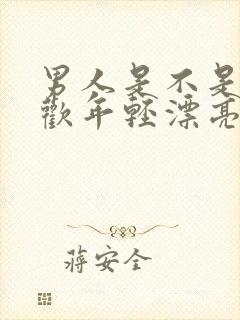 男人是不是
歡年輕漂亮
蔣安全